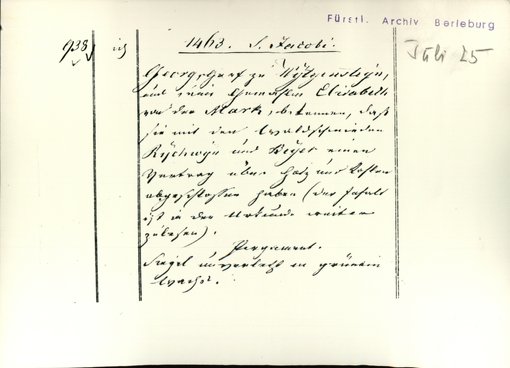 Fürstl. Archiv Berleburg
938. 1463. S. Jacobi. Juli 25
Georg, Graf zu Wytgensteyn,
und seine Gemahlin Elisabeth
von der Mark, bekennen, daß
sie mit den Waldschmieden
Rychwyn und Beyer einen
Vertrag über Holz und Kohlen
abgeschlossen haben (der Inhalt
ist in der Urkunde weiter
zu lesen).
Pergament.
Siegel unverletzt in grünem
Wachs.